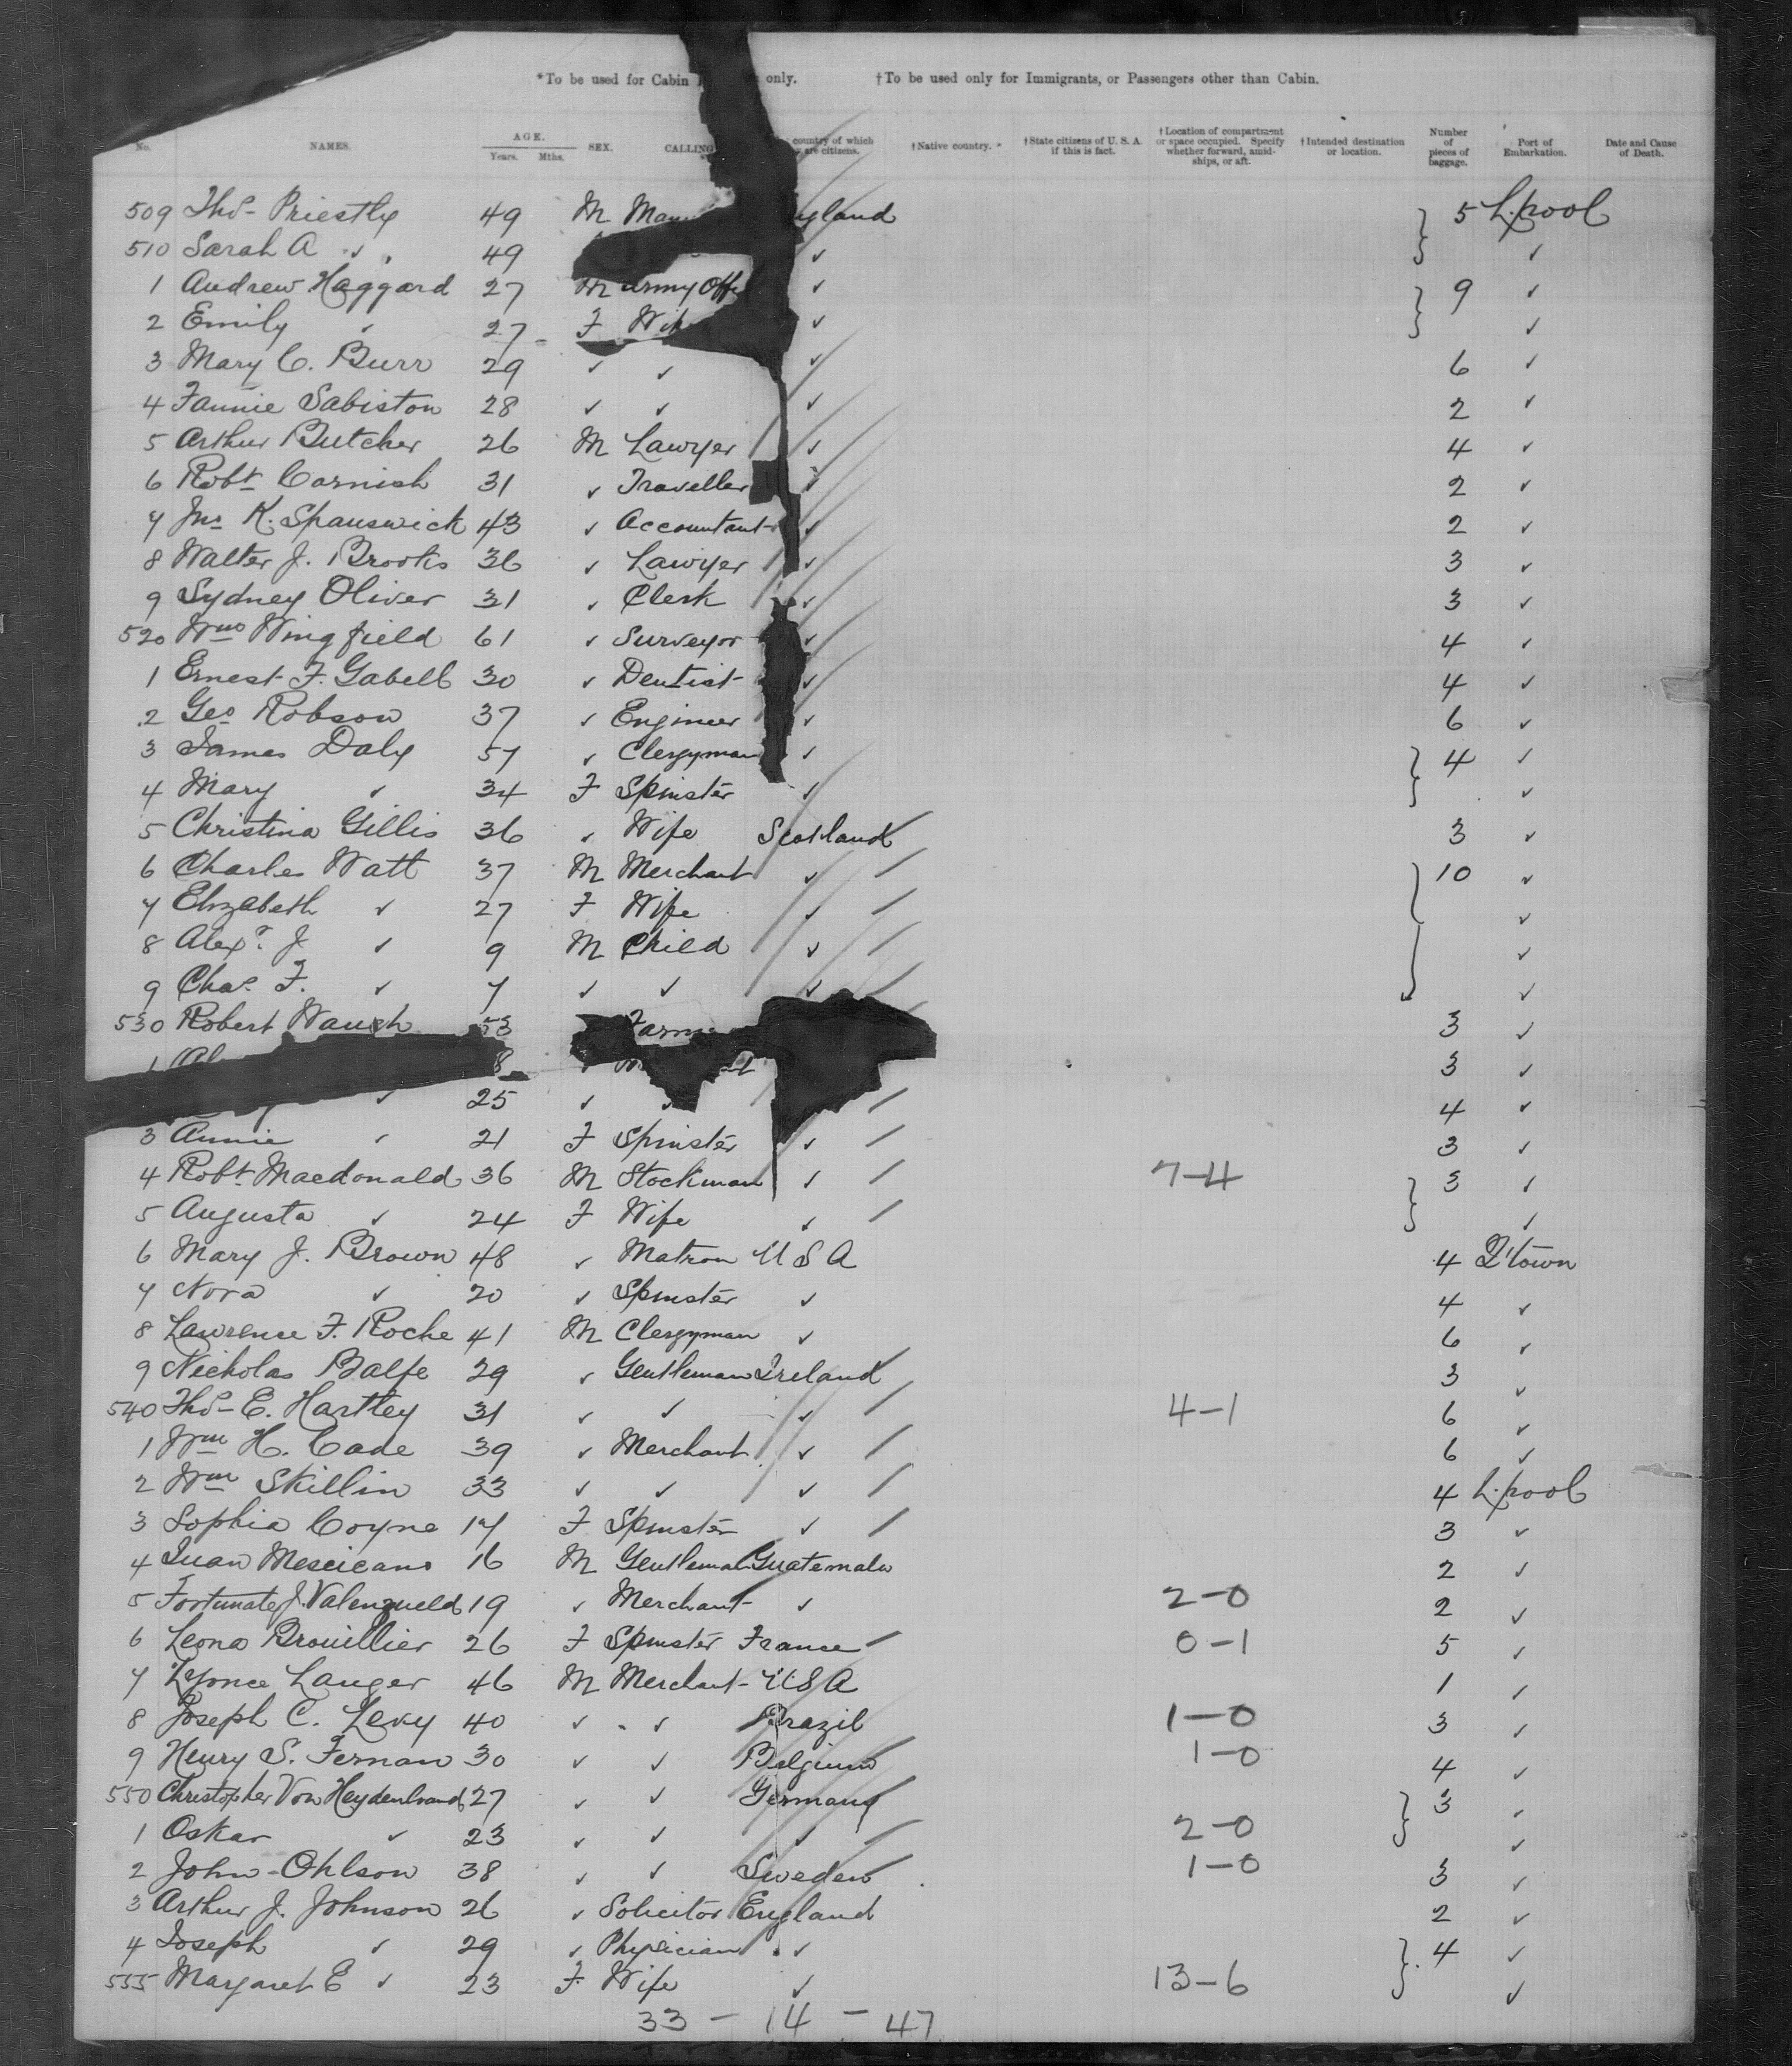 *To be used for Cabin only. †To be used only for Immigrants, or Passengers other than Cabin.
No. NAMES. AGE. Years. Mths. SEX. CALLING country of which are citizens. †Native country. †State citizens of U. S. A. if this is fact. †Location of compartment or space occupied. Specify whether forward, amidships, or aft. †Intended destination or location. Number of pieces of baggage. Port of Embarkation. Date and Cause of Death.
509 Thos Priestly 49 M 5 L.pool
510 Sarah A ✓ 49 ✓ ✓
1 Andrew Haggard 27 M Army ✓ 9 ✓
2 Emily ✓ 27 F ✓ ✓
3 Mary C. Burr 29 ✓ ✓ ✓ 6 ✓
4 Fannie Sabiston 28 ✓ ✓ ✓ 2 ✓
5 Arthur Butcher 26 M Lawyer ✓ 4 ✓
6 Robt Cornish 31 ✓ Traveller ✓ 2 ✓
7 Jno K. Spanswick 43 ✓ Accountant ✓ 2 ✓
8 Walter J. Brooks 36 ✓ Lawyer ✓ 3 ✓
9 Sydney Oliver 31 ✓ Clerk ✓ 3 ✓
520 Wm Wingfield 61 ✓ Surveyor ✓ 4 ✓
1 Ernest F. Gabell 30 ✓ Dentist ✓ 4 ✓
2 Geo Robson 37 ✓ Engineer ✓ 6 ✓
3 James Daly 57 ✓ Clergyman ✓ 4 ✓
4 Mary ✓ 34 F Spinster ✓ ✓
5 Christina Gillis 36 ✓ Wife Scotland 3 ✓
6 Charles Watt 37 M Merchant ✓ 10 ✓
7 Elizabeth ✓ 27 F Wife ✓ ✓
8 Alexr. J. ✓ 9 M Child ✓ ✓
9 Chas. F. ✓ 7 ✓ ✓ ✓ ✓
530 Robert Waugh 53 3 ✓
3 ✓
✓ 25 ✓ 4 ✓
3 Annie ✓ 21 F Spinster ✓ 3 ✓
4 Robt Macdonald 36 M Stockman ✓ 7-4 3 ✓
5 Augusta ✓ 24 F Wife ✓ ✓
6 Mary J. Brown 48 ✓ Matron U S A 4 Q'town
7 Nora ✓ 20 ✓ Spinster ✓ 4 ✓
8 Lawrence F. Roche 41 M Clergyman ✓ 6 ✓
9 Nicholas Balfe 29 ✓ Gentleman Ireland 3 ✓
540 Thos E. Hartley 31 ✓ ✓ ✓ 4-1 6 ✓
1 Wm H. Cade 39 ✓ Merchant ✓ 6 ✓
2 Wm Skillin 33 ✓ ✓ ✓ 4 L.pool
3 Sophia Coyne 17 F Spinster ✓ 3 ✓
4 Juan Mescicans 16 M Gentleman Guatemala 2 ✓
5 Fortunate J. Valenzueld 19 ✓ Merchant ✓ 2-0 2 ✓
6 Leona Brouillier 26 F Spinster France 0-1 5 ✓
7 Lyonce Langer 46 M Merchant U S A 1 ✓
8 Joseph C. Levy 40 ✓ ✓ Brazil 1-0 3 ✓
9 Henry S. Fernan 30 ✓ ✓ Belgium 1-0 4 ✓
550 Christopher Von Heydenbrand 27 ✓ ✓ Germany 3 ✓
1 Oskar ✓ 23 ✓ ✓ ✓ 2-0 ✓
2 John Ohlson 38 ✓ ✓ Sweden 1-0 3 ✓
3 Arthur J. Johnson 26 ✓ Solicitor England 2 ✓
4 Joseph ✓ 29 ✓ Physician ✓ 4 ✓
555 Margaret E ✓ 23 F Wife ✓ 13-6 ✓
33 - 14 - 47